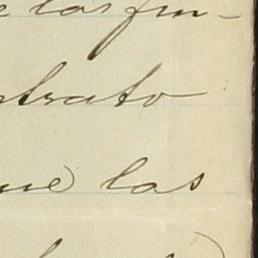 e las fin-
ntrato
ue las